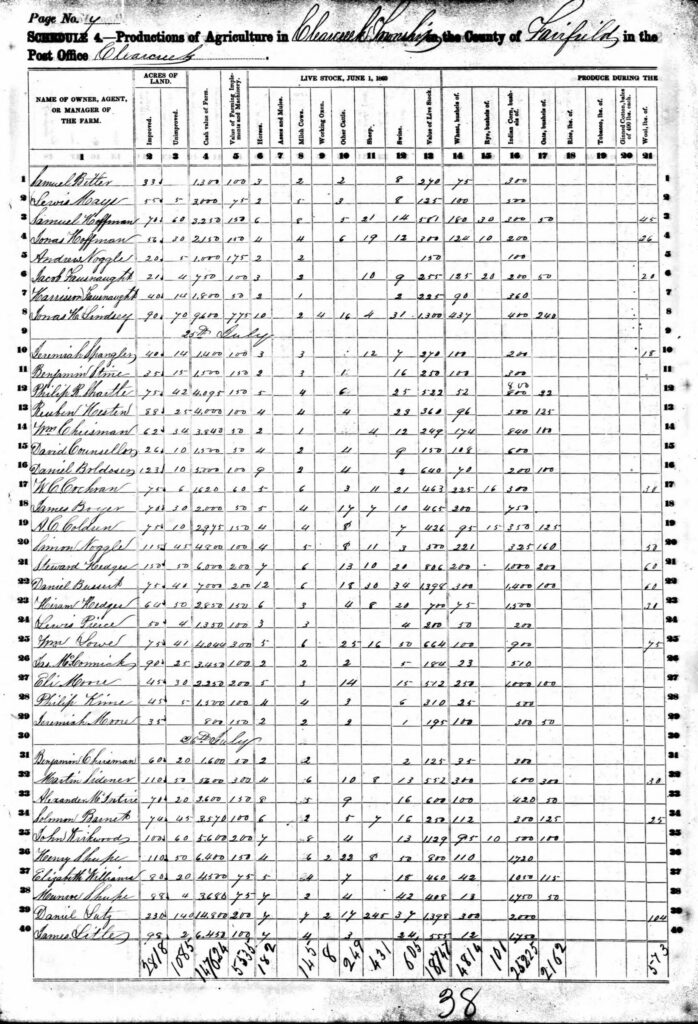 Page No. 4
SCHEDULE 4.—Productions of Agriculture in Clearcreek Township in the County of Fairfield in the
Post Office Clearcreek
NAME OF OWNER, AGENT, OR MANAGER OF THE FARM. ACRES OF LAND. Improved. Unimproved. Cash value of Farm. Value of Farming Implements and Machinery. LIVE STOCK, JUNE 1, 1860 Horses. Asses and Mules. Milch Cows. Working Oxen. Other Cattle. Sheep. Swine. Value of Live Stock. PRODUCE DURING THE Wheat, bushels of. Rye, bushels of. Indian Corn, bushels of. Oats, bushels of. Rice, lbs. of. Tobacco, lbs. of. Ginned Cotton, bales of 400 lbs. each. Wool, lbs. of.
1 2 3 4 5 6 7 8 9 10 11 12 13 14 15 16 17 18 19 20 21
1 Samuel 1300 100 3 2 2 8 270 75 300 1
2 Lewis Mays 55 5 3000 75 2 5 3 8 125 100 500 2
3 Samuel Hoffman 70 60 3250 150 6 8 5 21 14 581 180 30 300 50 45 3
4 Jonas Hoffman 56 30 2150 150 4 4 6 19 12 300 124 10 200 26 4
5 Andrew Noggle 20 5 1,000 175 2 2 150 100 5
6 Jacob 21 4 750 100 3 2 10 9 255 125 20 200 50 20 6
7 Harrison 40 14 1,800 50 2 1 2 225 90 360 7
8 Jonas H. Lindsey 90 70 9600 775 10 2 4 16 4 31 1,300 437 400 240 8
9 25th July 9
10 Jeremiah Spangler 40 14 1,400 100 3 3 12 7 270 100 200 18 10
11 Benjamin 35 15 1,500 150 2 3 1 16 250 100 300 11
12 Philip R. 75 42 4,095 150 5 4 6 25 522 52 800 22 12
13 Reuben 88 25 4,000 100 4 4 4 23 360 96 500 125 13
14 Wm Chrisman 62 34 3,840 50 2 1 4 12 249 174 840 100 14
15 David Counsellor 26 10 1,500 50 4 2 4 9 150 108 600 15
16 Daniel 123 10 5,000 100 9 2 4 2 640 70 200 100 16
17 W. C. Cochran 75 6 1620 60 5 6 3 11 21 463 225 16 300 17
18 James 70 30 2,000 50 5 4 17 7 10 465 200 750 18
19 A. C. 75 10 2975 150 4 4 8 7 426 95 15 350 125 19
20 Simon Noggle 115 45 4800 100 4 5 8 11 3 500 221 325 160 50 20
21 Steward Hedges 150 50 6,000 200 7 6 13 10 20 806 200 1000 200 60 21
22 Daniel 75 40 7000 200 12 6 18 30 34 1398 300 1,400 100 60 22
23 Hiram Hedges 64 50 2850 150 6 3 4 8 20 700 75 1500 23
24 Lewis Pierce 50 4 1350 100 3 3 4 200 50 200 24
25 Wm Lowe 75 41 4,044 300 5 6 25 16 50 664 100 900 75 25
26 Jas. McCormick 90 25 3,450 100 2 2 2 5 184 23 510 26
27 Eli Moore 45 30 2,250 200 5 3 14 15 512 250 1000 100 27
28 Philip Kime 45 5 1,500 100 4 4 3 6 310 25 500 28
29 Jeremiah Moore 35 800 150 2 2 2 1 195 100 300 50 29
30 26th July 30
31 Benjamin Chrisman 60 20 1,600 50 2 2 2 125 35 300 31
32 Martin 110 50 300 4 6 10 8 13 552 300 600 300 30 32
33 Alexander McIntire 70 20 3,600 150 8 5 9 16 600 100 420 50 33
34 Solomon Barnet 74 45 3,570 100 6 2 5 7 16 250 112 300 125 25 34
35 John Kirkwood 100 60 5,600 200 7 8 4 13 1129 95 10 500 100 35
36 Henry 110 50 6,400 150 4 6 2 22 8 50 800 110 1720 36
37 Elizabeth Williams 80 20 4,500 75 5 4 7 18 460 42 1050 115 37
38 88 4 3,680 75 7 2 4 42 408 13 1750 50 38
39 Daniel Lutz 230 140 14,800 200 7 7 2 17 245 37 1398 200 2000 104 39
40 James Little 98 2 6,450 100 7 4 3 24 555 12 1750 40
2818 1085 147624 5535 182 145 8 249 431 603 18747 4814 101 25225 2162 573
38